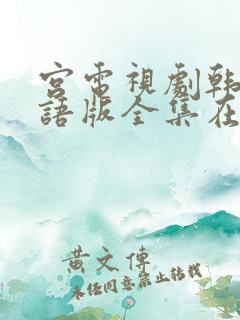 宮電視劇韩
語版全集在
黄文傳
未任同意禁止转载